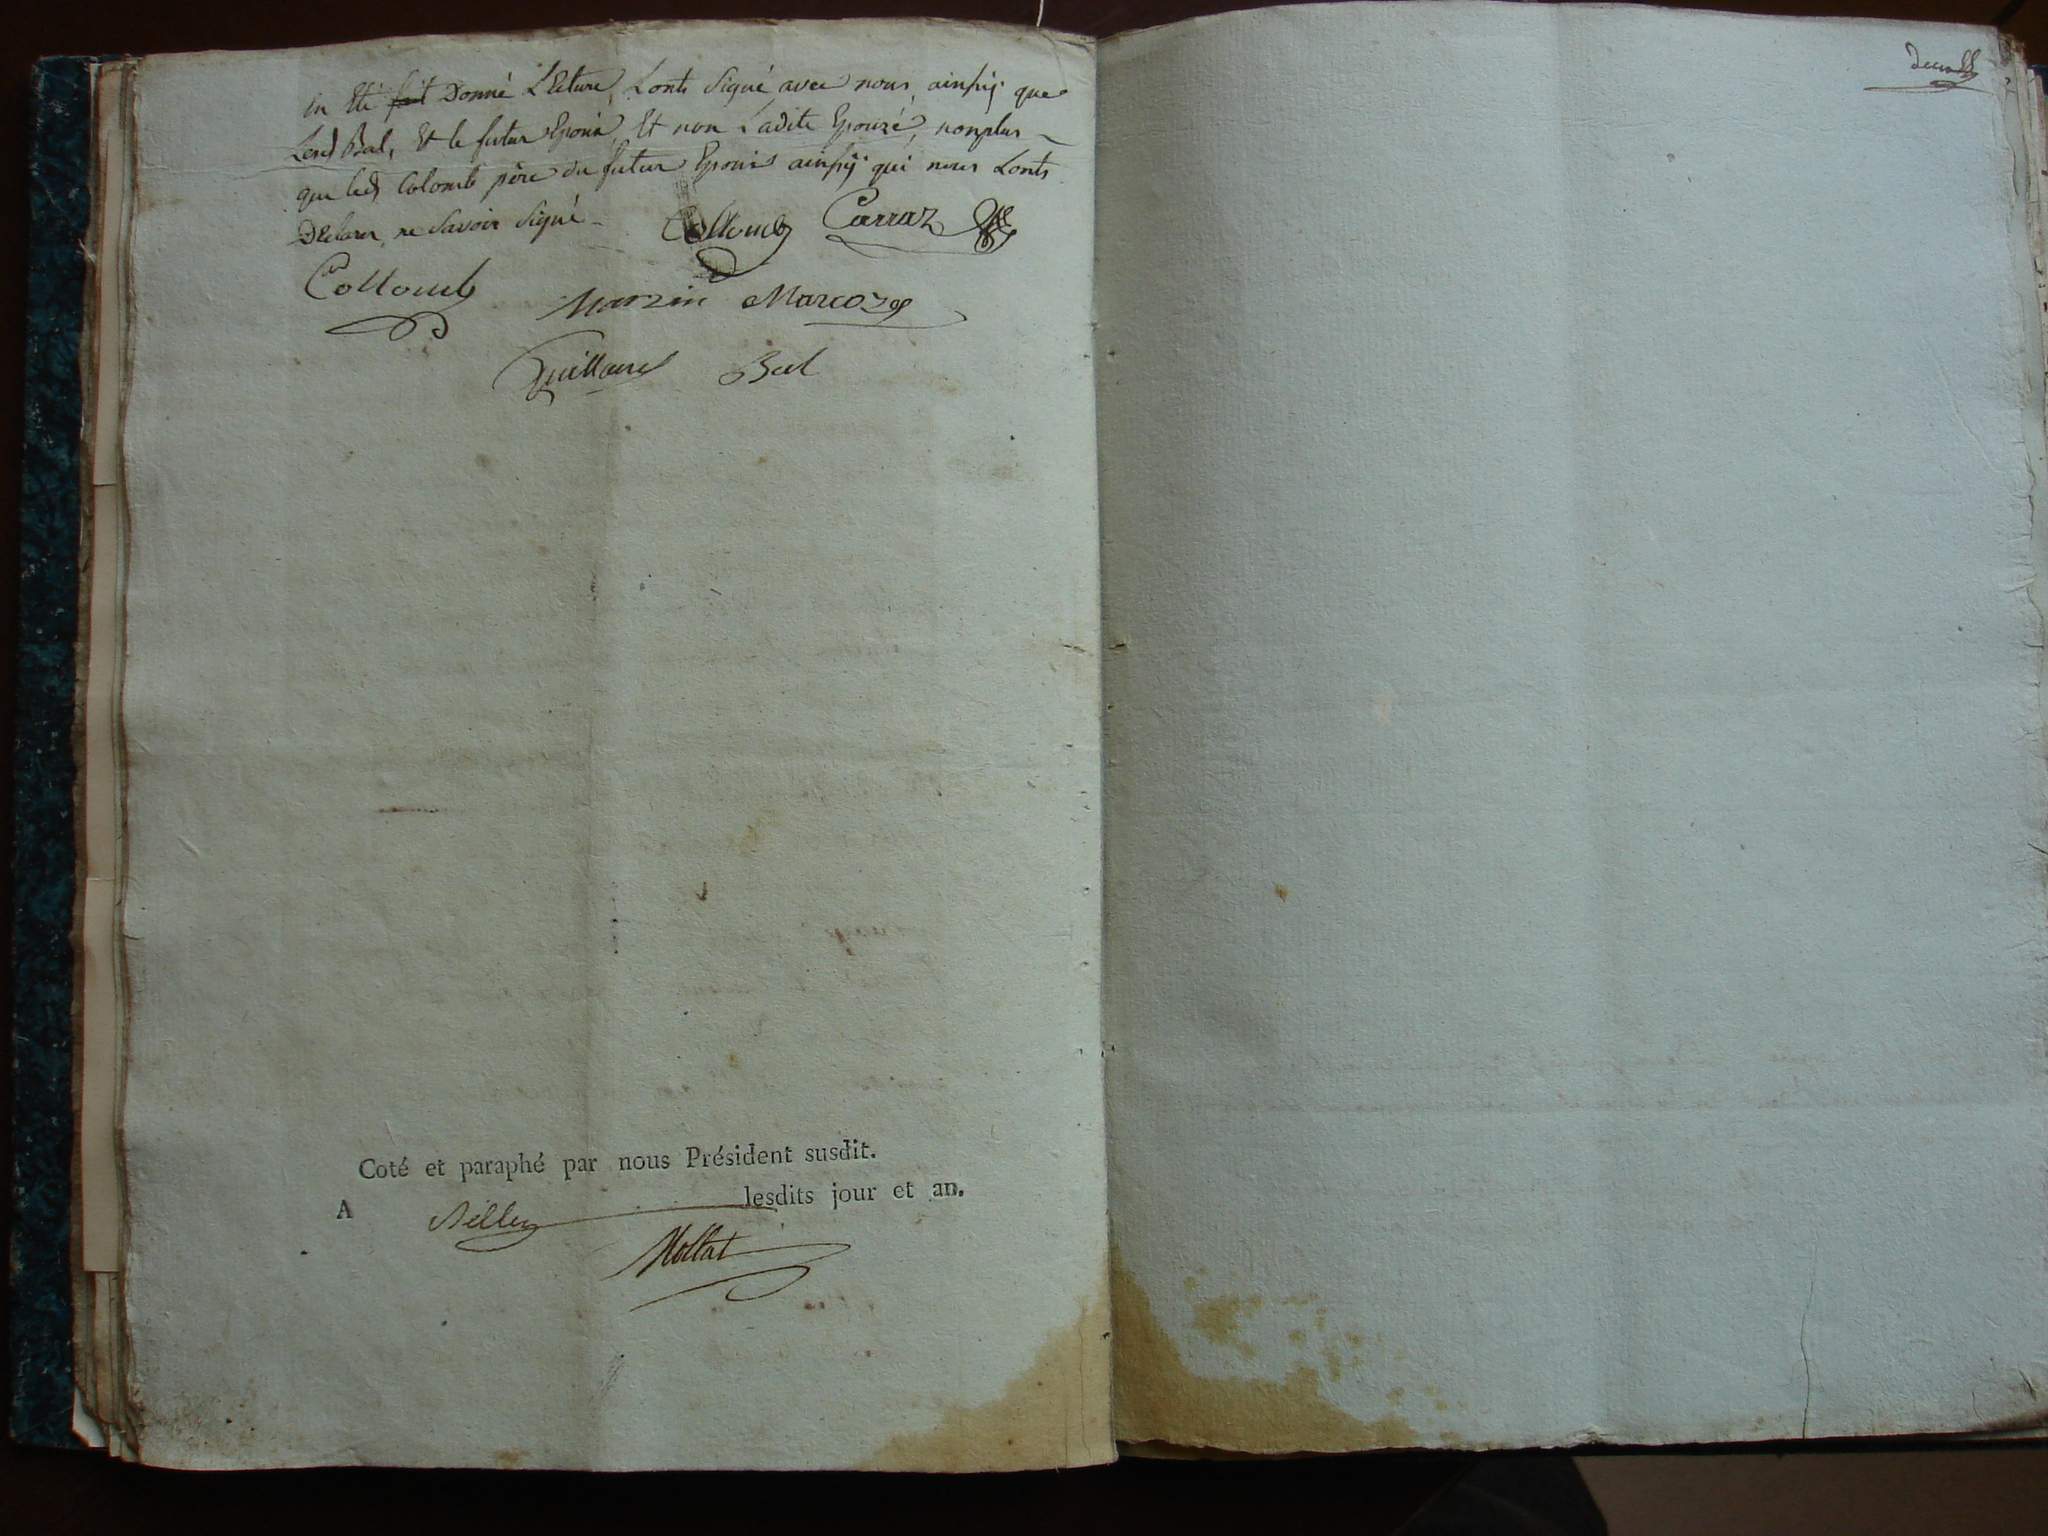 en Eté fait Donné Lecture, Lonts Signé avec nous, ainsÿ que
Bal, Et le futur Epoux, Et non Ladite Epouze, nonplus
que led Colomb père du futur Epoux ainsÿ qui nous Lonts
Déclarer, ne Savoir Signé
Collomb Carraz
Collomb Marzin Marcoz
Bal
Coté et paraphé par nous Président susdit.
A lesdits jour et an.
Mollat